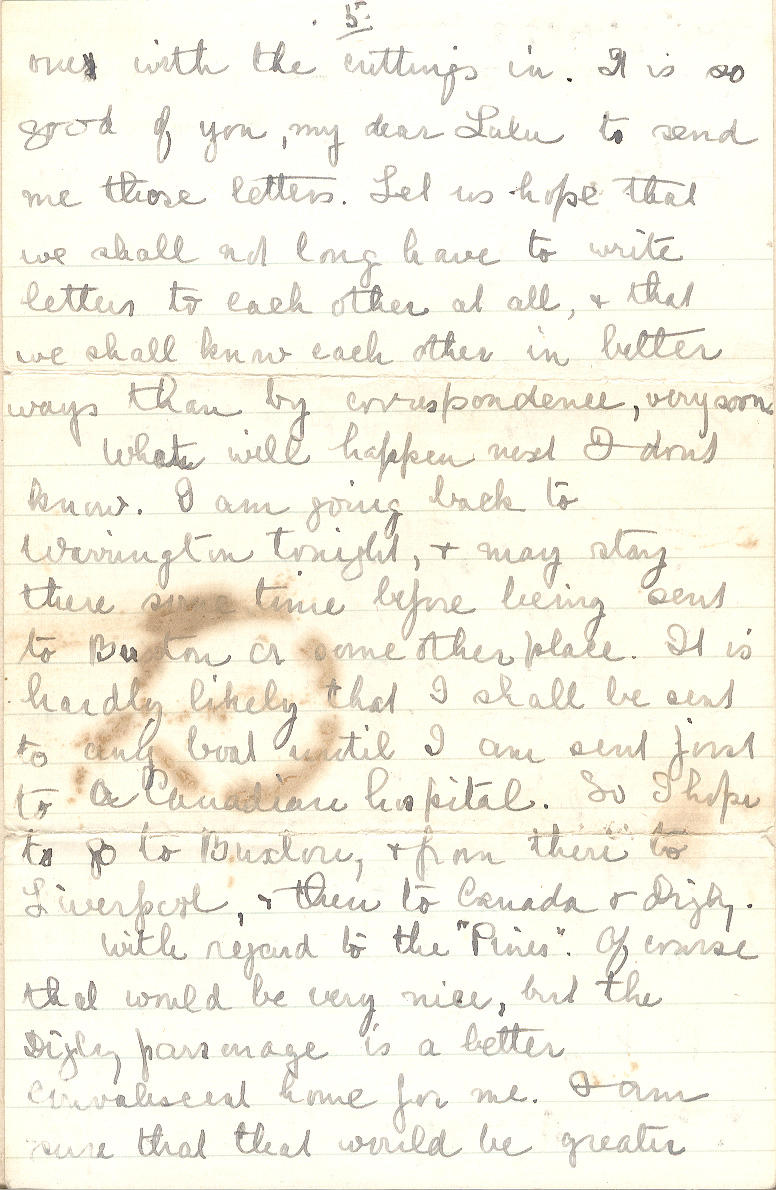 5.
ones with the cuttings in. It is so
good of you, my dear Lulu to send
me those letters. Let us hope that
we shall not long have to write
letters to each other at all, & that
we shall know each other in better
ways than by correspondence, very soon.
What will happen next I dont
know. I am going back to
Warrington tonight, & may stay
there some time before being sent
to Buxton or some other place. It is
hardly likely that I shall be sent
to any boat until I am sent first
to a Canadian hospital. So I hope
to go to Buxton, & from there to
Liverpool, & then to Canada & Digby.
With regard to the "Pines". Of course
that would be very nice, but the
Digby parsonage is a better
convalescent home for me. I am
sure that that would be greater